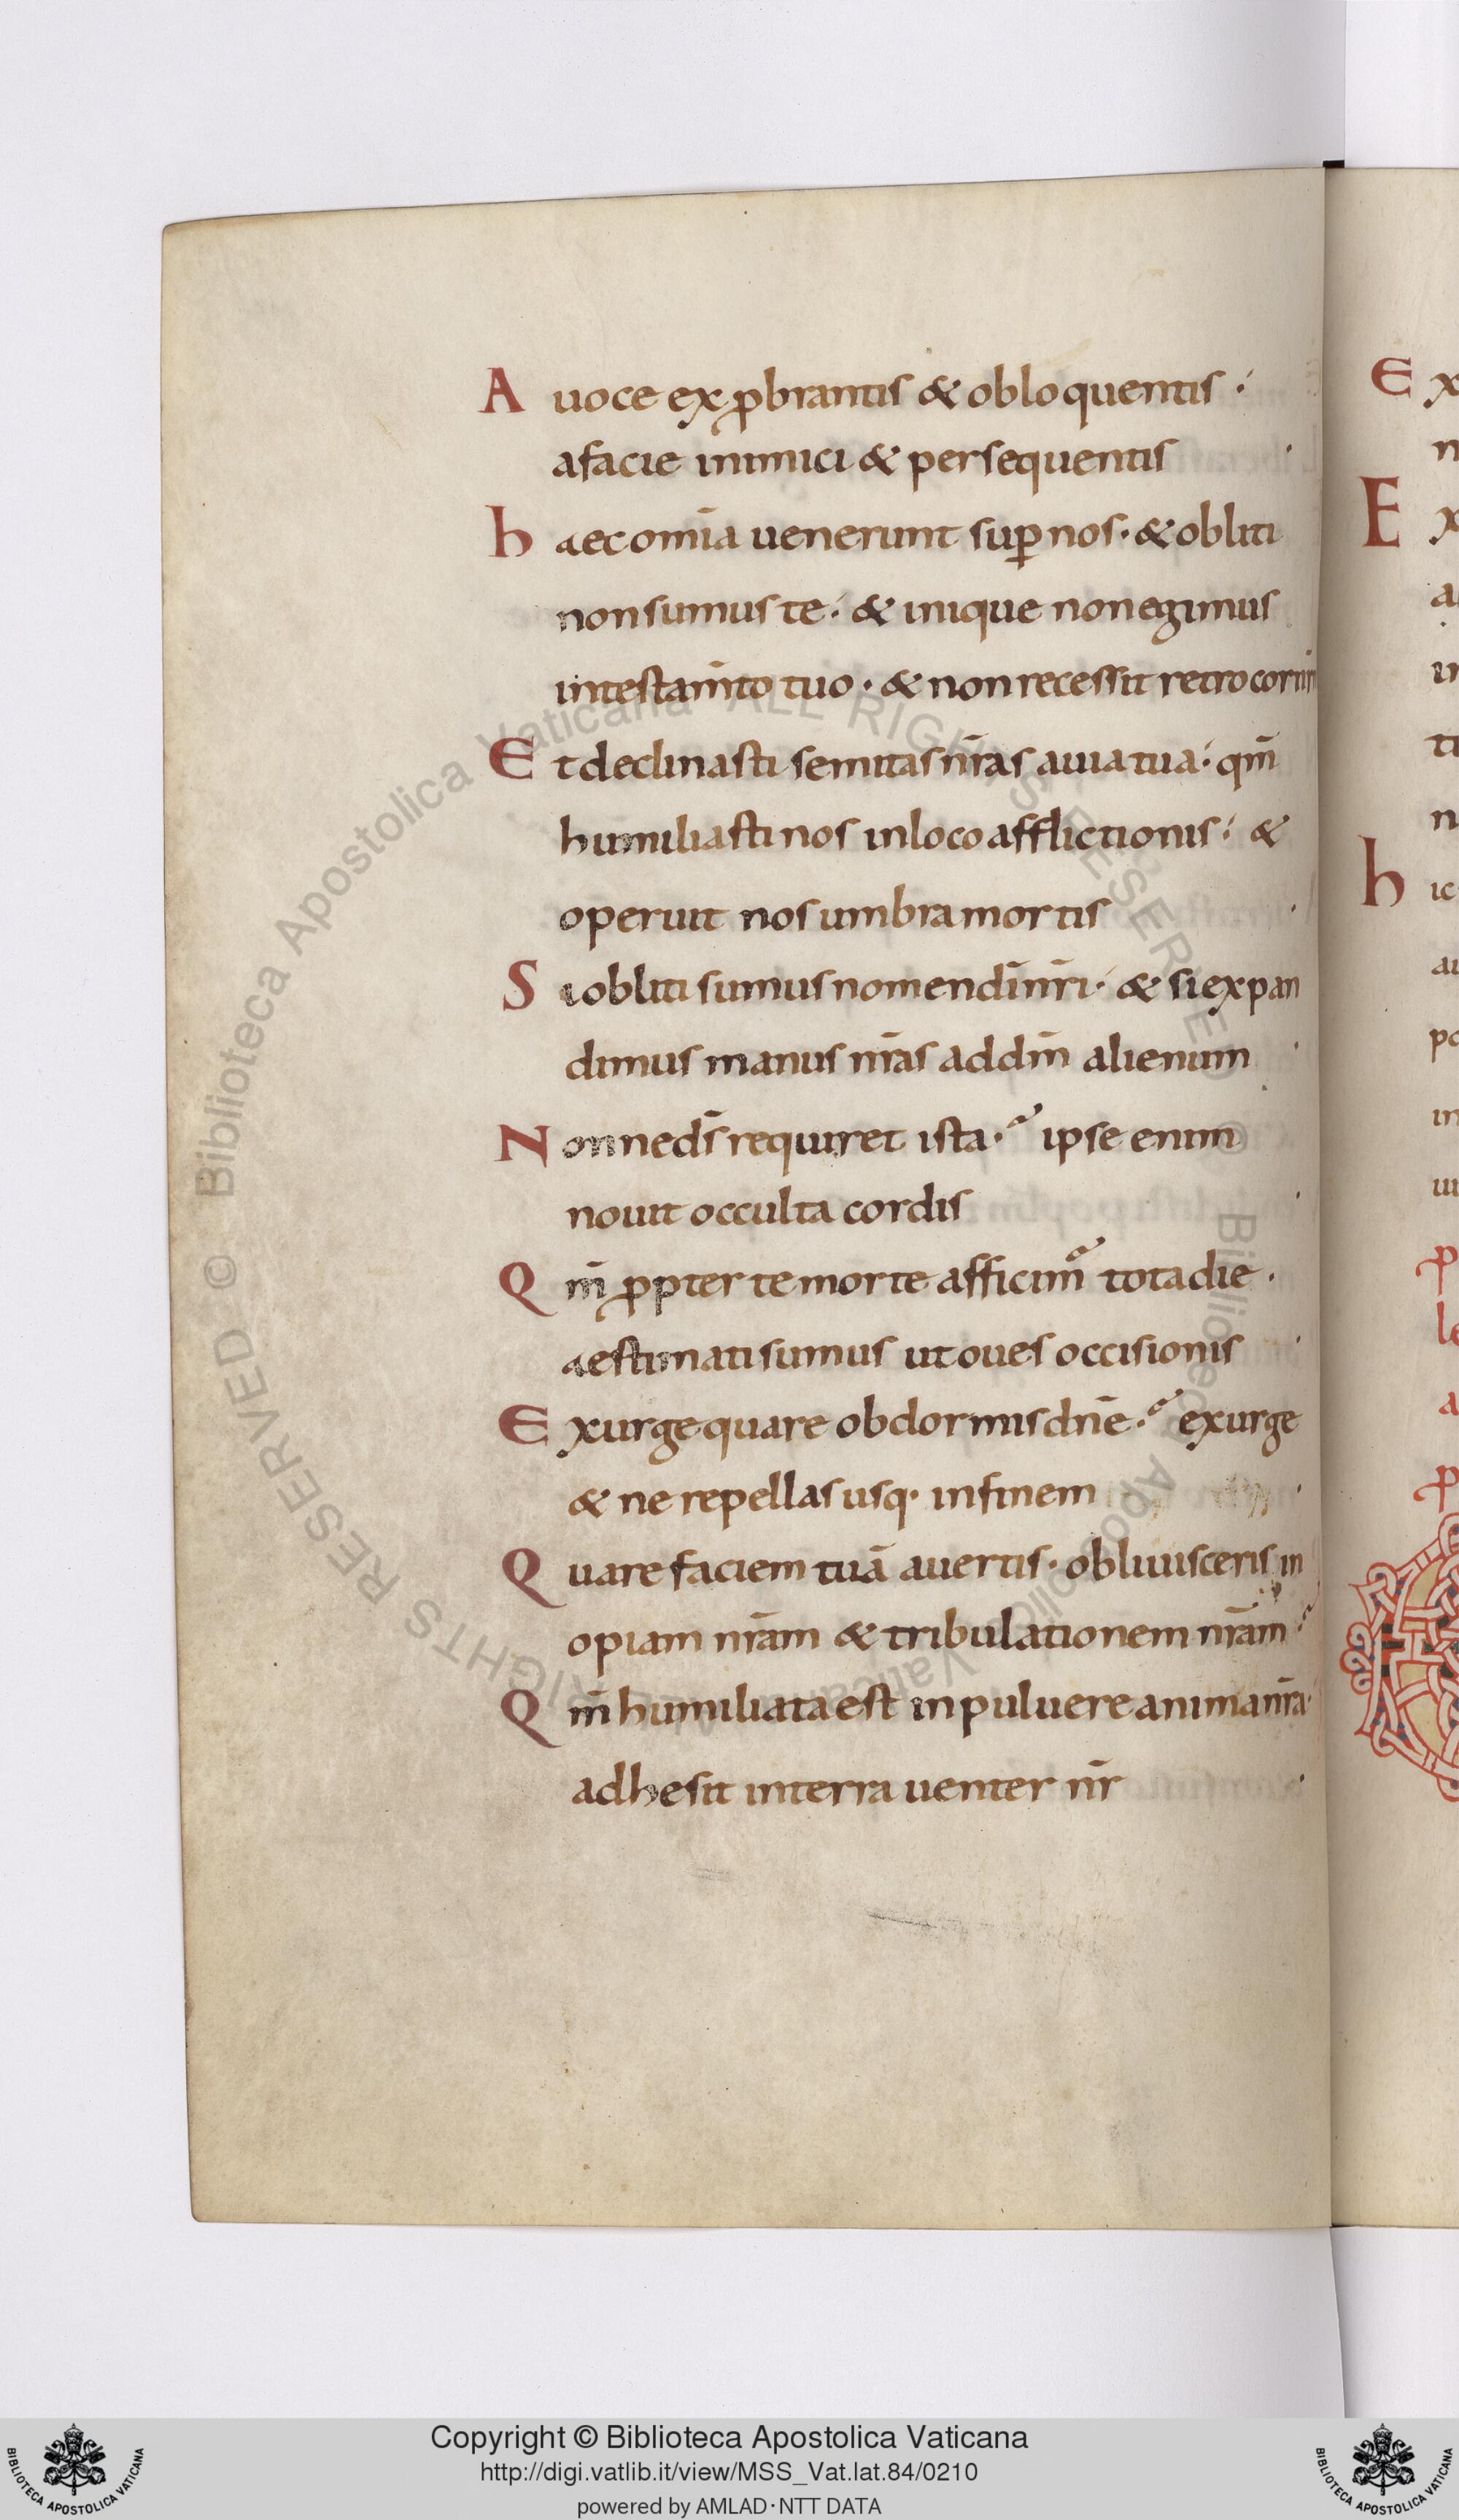 A uoce exꝓbrantis & obloquentis ·
afacie inimici & persequentis ·
h aec om̄ia uenerunt suꝑ nos · & obliti
non sumus te · & inique non egimus
intestam̄to tuo · & non recessit retro cor nr̄m
E t declinasti semitas nr̄as a uia tua · qm̄
humiliasti nos inloco afflictionis · &
operuit nos umbra mortis ·
S i obliti sumus nomen dī nr̄i · & si expan
dimus manus nr̄as ad dm̄ alienum ·
N onne ds̄ requiret ista · ipse enim
nouit occulta cordis ·
Q m̄ ꝓpter te morte afficim̄ tota die ·
aestimati sumus ut oues occisionis ·
E xurge quare obdormis dn̄e · exurge
& ne repellas usq· infinem ·
Q uare faciem tuā auertis · obliuisceris in
opiam nr̄am & tribulationem nr̄am
Q m̄ humiliata est in puluere anima nr̄a·
adhesit interra uenter nr̄ ·
E x
n
E x
a
in
ti
n
h ic
au
po
in
ui
p
le
a
p
© Biblioteca Apostolica Vaticana ALL RIGHTS RESERVED © Biblioteca Apostolica Vaticana ALL RIGHTS RESERVED
Copyright © Biblioteca Apostolica Vaticana
http://digi.vatlib.it/view/MSS_Vat.lat.84/0210
powered by AMLAD·NTT DATA
BIBLIOTECA APOSTOLICA VATICANA
BIBLIOTECA APOSTOLICA VATICANA